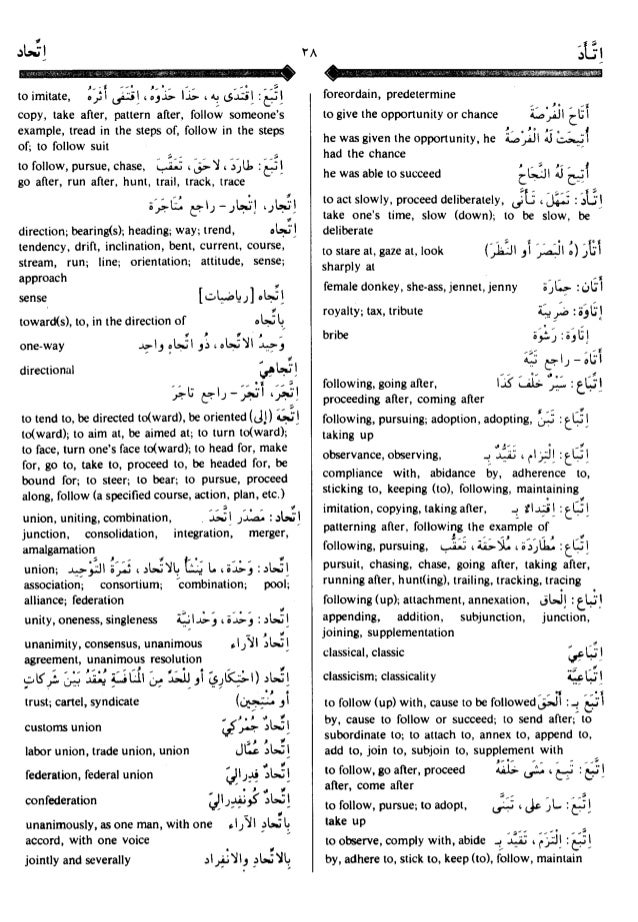 اِتَّأَدَ ٢٨ اِتِّحاد
foreordain, predetermine
أَتَاحَ الْفُرْصَةَ to give the opportunity or chance
أُتِيحَتْ لَهُ الْفُرْصَةُ he was given the opportunity, he
had the chance
أُتِيحَ لَهُ النَّجَاحُ he was able to succeed
اِتَّأَدَ: تَمَهَّلَ، تَأَنَّى to act slowly, proceed deliberately,
take one's time, slow (down); to be slow, be
deliberate
أَتْأَرَ (هُ الْبَصَرَ أو النَّظَرَ) to stare at, gaze at, look
sharply at
أَتَان: حِمَارَة female donkey, she-ass, jennet, jenny
إِتَاوَة: ضَرِيبَة royalty; tax, tribute
إِتَاوَة: رَشْوَة bribe
أَتَاهَ - راجع تَيَّهَ
اِتِّبَاع: سَيْرٌ خَلْفَ كَذَا following, going after,
proceeding after, coming after
اِتِّبَاع: تَبَنٍّ following, pursuing; adoption, adopting,
taking up
اِتِّبَاع: اِلْتِزَام، تَقَيُّدٌ بِـ observance, observing,
compliance with, abidance by, adherence to,
sticking to, keeping (to), following, maintaining
اِتِّبَاع: اِقْتِدَاء بِـ imitation, copying, taking after,
patterning after, following the example of
اِتِّبَاع: مُطَارَدَة، مُلَاحَقَة، تَعَقُّب following, pursuing,
pursuit, chasing, chase, going after, taking after,
running after, hunt(ing), trailing, tracking, tracing
إِتْبَاع: إِلْحَاق following (up); attachment, annexation,
appending, addition, subjunction, junction,
joining, supplementation
اِتِّبَاعِيّ classical, classic
اِتِّبَاعِيَّة classicism; classicality
أَتْبَعَ بِـ: أَلْحَقَ to follow (up) with, cause to be followed
by, cause to follow or succeed; to send after; to
subordinate to; to attach to, annex to, append to,
add to, join to, subjoin to, supplement with
اِتَّبَعَ: تَبِعَ، مَشَى خَلْفَهُ to follow, go after, proceed
after, come after
اِتَّبَعَ: سَارَ على، تَبَنَّى to follow, pursue; to adopt,
take up
اِتَّبَعَ: اِلْتَزَمَ، تَقَيَّدَ بِـ to observe, comply with, abide
by, adhere to, stick to, keep (to), follow, maintain
اِتَّبَعَ: اِقْتَدَى بِهِ، حَذَا حَذْوَهُ، اِقْتَفَى أَثَرَهُ to imitate,
copy, take after, pattern after, follow someone's
example, tread in the steps of, follow in the steps
of; to follow suit
اِتَّبَعَ: طارَدَ، لاحَقَ، تَعَقَّبَ to follow, pursue, chase,
go after, run after, hunt, trail, track, trace
اِتِّجار، إتْجار - راجع مُتَاجَرَة
اِتِّجاه direction; bearing(s); heading; way; trend,
tendency, drift, inclination, bent, current, course,
stream, run; line; orientation; attitude, sense;
approach
اِتِّجاه [رياضيات] sense
بِاتِّجاه toward(s), to, in the direction of
وَحِيدُ الاتِّجاه، ذُو اتِّجاهٍ واحِد one-way
اِتِّجاهِيّ directional
اِتَّجَرَ، أَتْجَرَ - راجع تاجَرَ
اِتَّجَهَ (إلى) to tend to, be directed to(ward), be oriented
to(ward); to aim at, be aimed at; to turn to(ward);
to face, turn one's face to(ward); to head for, make
for, go to, take to, proceed to, be headed for, be
bound for; to steer; to bear; to pursue, proceed
along, follow (a specified course, action, plan, etc.)
اِتِّحاد: مَصْدَر اِتَّحَدَ union, uniting, combination,
junction, consolidation, integration, merger,
amalgamation
اِتِّحاد: وَحْدَة، ما يَنْشَأُ بِالاتِّحاد، ثَمَرَةُ التَّوْحِيد union;
association; consortium; combination; pool;
alliance; federation
اِتِّحاد: وَحْدَة، وَحْدَانِيَّة unity, oneness, singleness
اِتِّحادُ الآراء unanimity, consensus, unanimous
agreement, unanimous resolution
اِتِّحاد (احْتِكارِيّ أو لِلْحَدِّ مِنَ الْمُنَافَسَةِ يُعْقَدُ بَيْنَ شَرِكَاتٍ
أو مُنْتِجِين) trust; cartel, syndicate
اِتِّحادٌ جُمْرُكِيّ customs union
اِتِّحادُ عُمَّال labor union, trade union, union
اِتِّحادٌ فِدِرالِيّ federation, federal union
اِتِّحادٌ كُونْفِدِرالِيّ confederation
بِاتِّحادِ الآراء unanimously, as one man, with one
accord, with one voice
بِالاتِّحادِ والانْفِراد jointly and severally